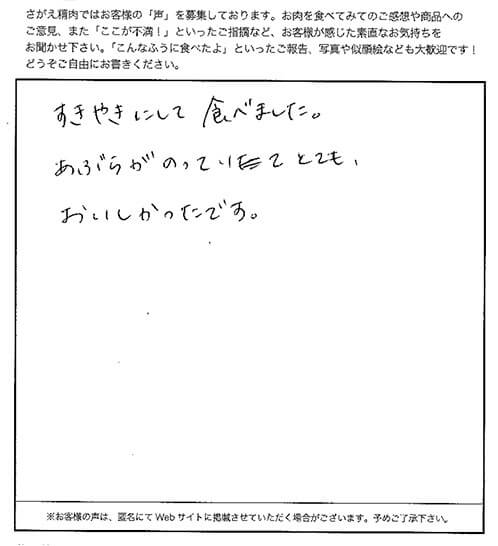 さがえ精肉ではお客様の「声」を募集しております。お肉を食べてみてのご感想や商品への
ご意見、また「ここが不満！」といったご指摘など、お客様が感じた素直なお気持ちを
お聞かせ下さい。「こんなふうに食べたよ」といったご報告、写真や似顔絵なども大歓迎です！
どうぞご自由にお書きください。
すきやきにして 食べました。
あぶらがのっていて とても、
おいしかったです。
※お客様の声は、匿名にてWebサイトに掲載させていただく場合がございます。予めご了承下さい。